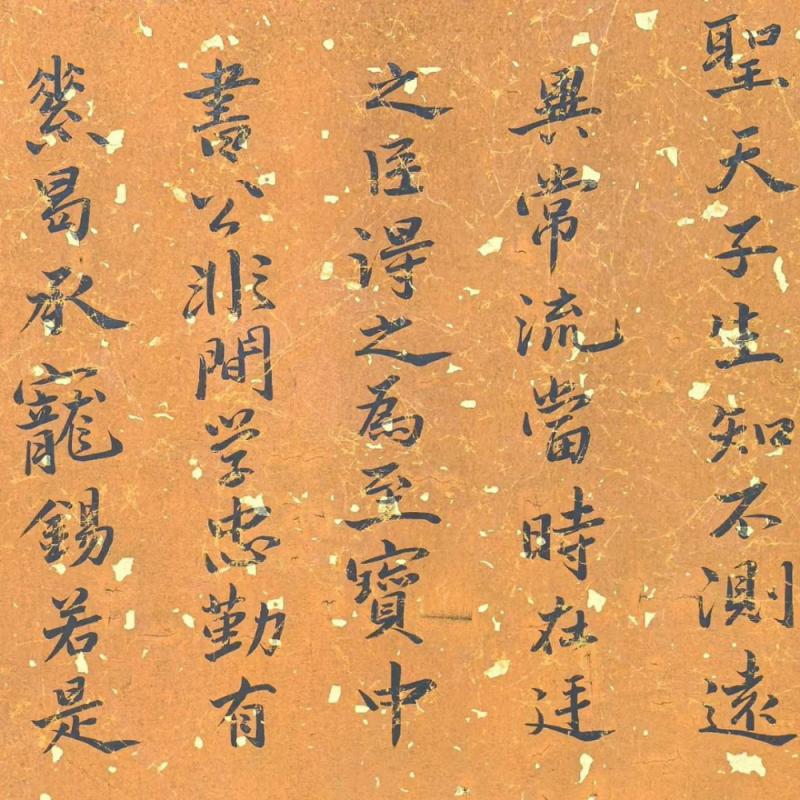 聖天子生知不測遠
異常流當時在廷
之臣得之為至寶中
書公非間学忠勤有
素曷承寵錫若是